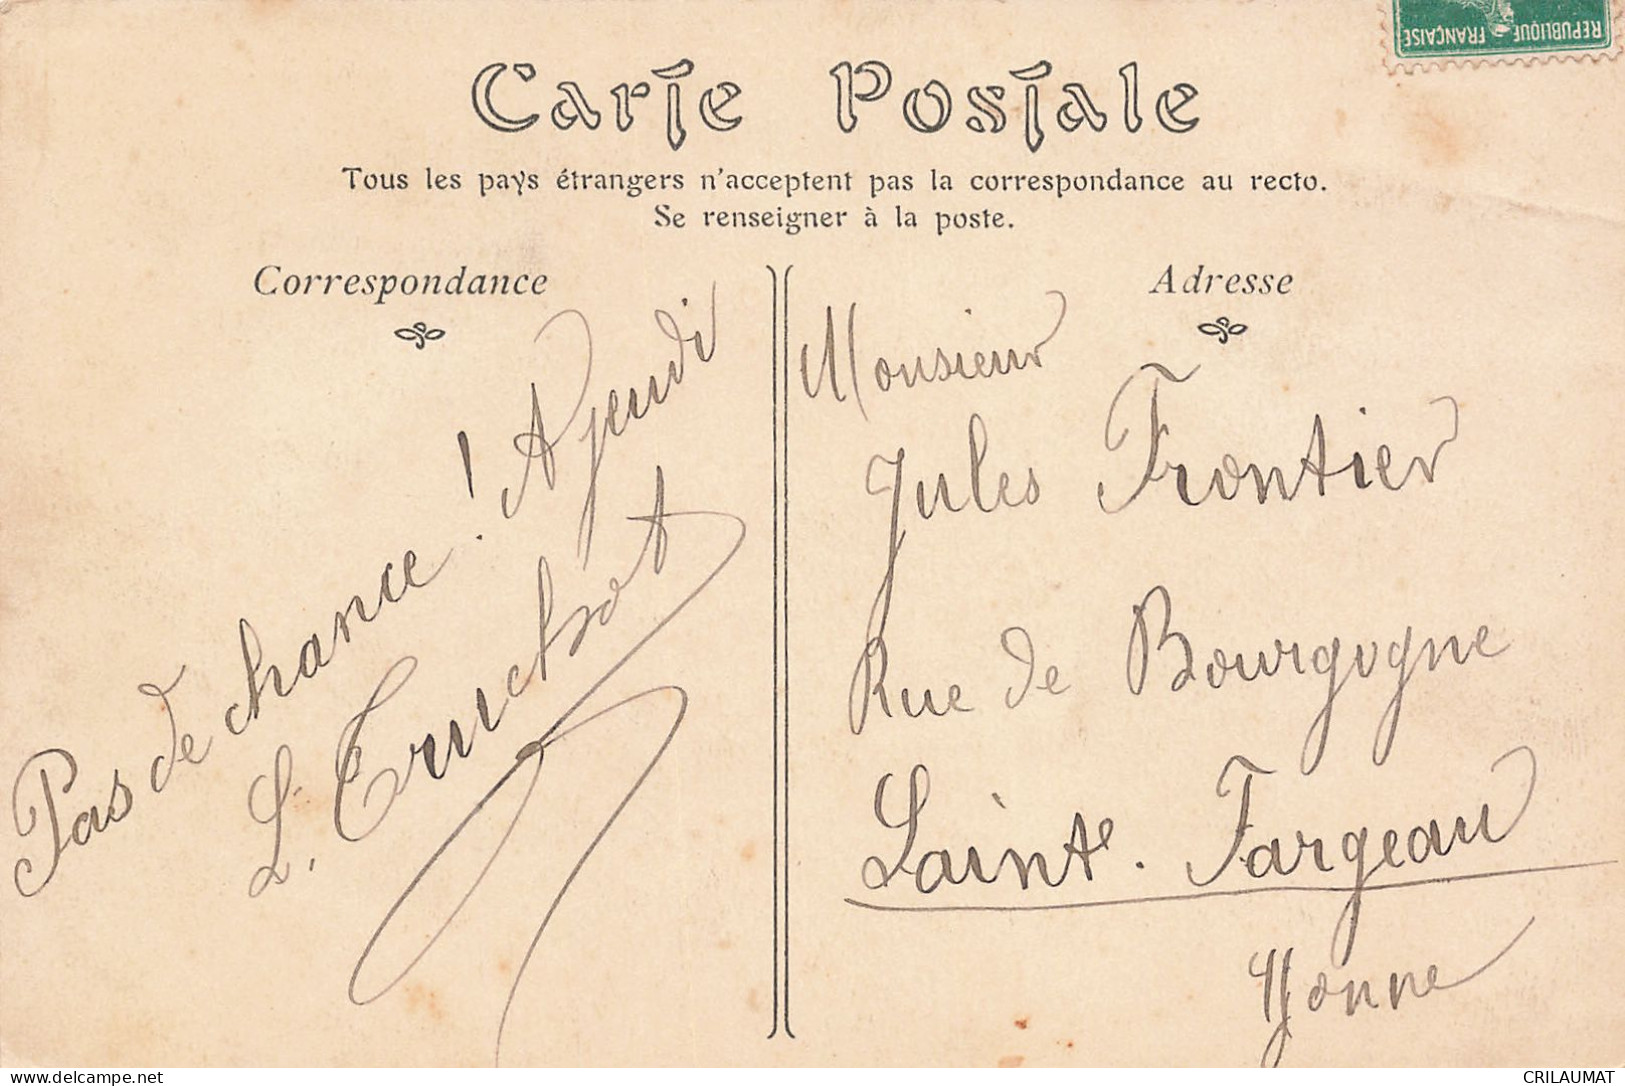 REPUBLIQUE FRANÇAISE
Carte Postale
Tous les pays étrangers n'acceptent pas la correspondance au recto.
Se renseigner à la poste.
Correspondance
Pas de chance ! A jeudi
L.
Adresse
Monsieur
Jules Frontier
Rue de Bourgogne
Sainte. Fargeau
Yonne
CRILAUMAT